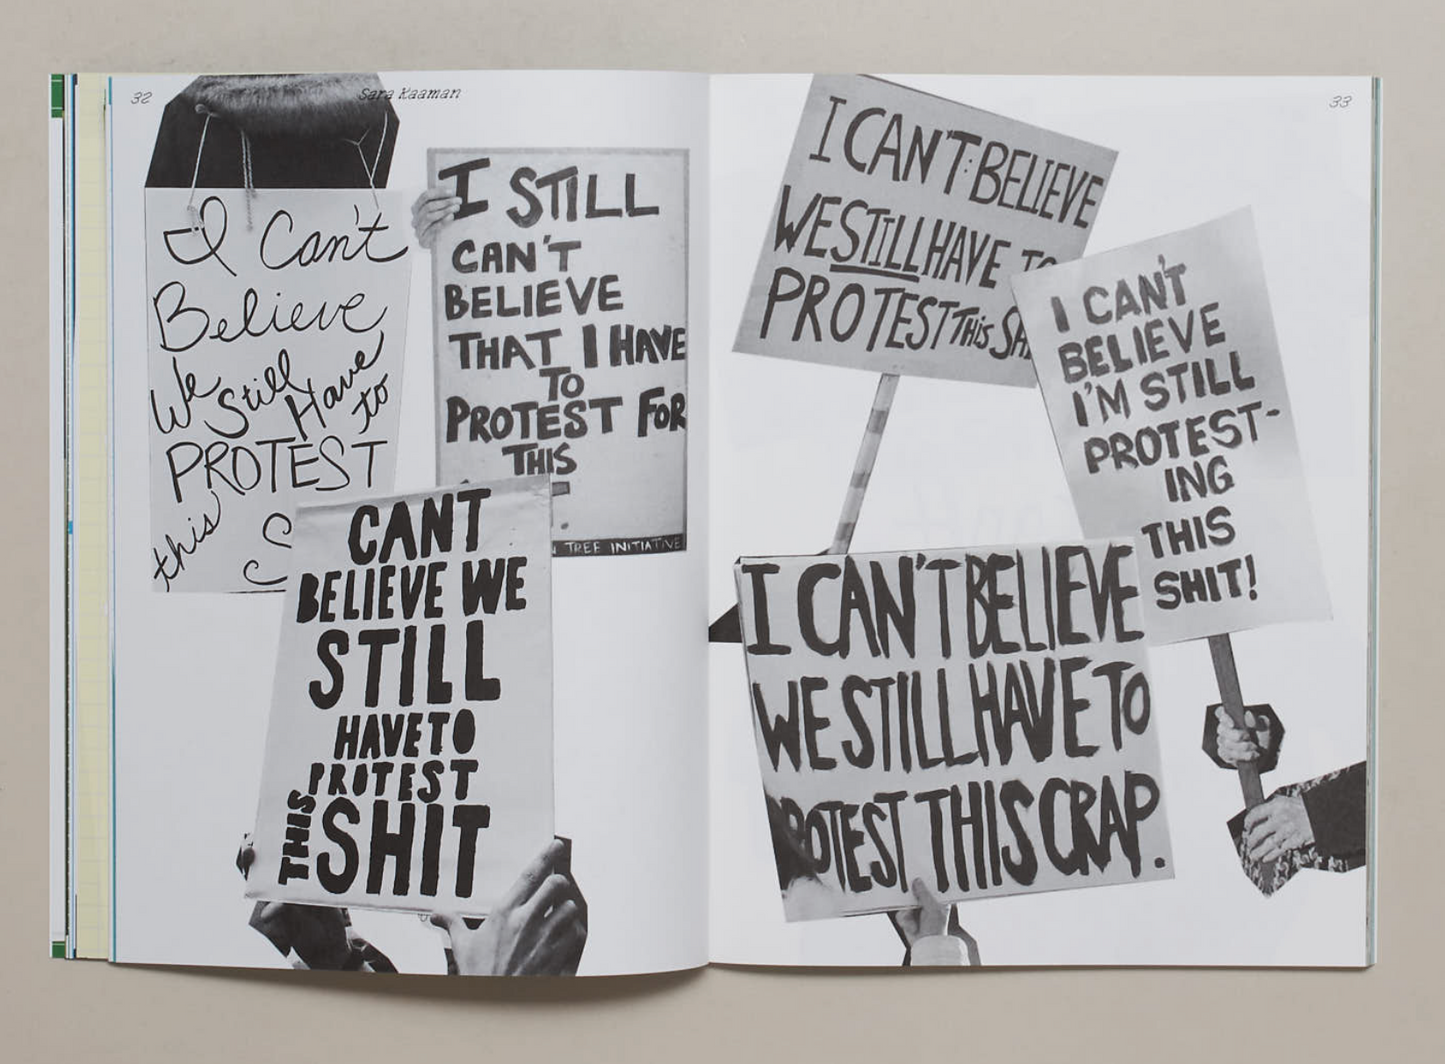 32
Sara Kaaman
I Can't
Believe
We Still Have to
PROTEST
this
I STILL
CAN'T
BELIEVE
THAT I HAVE
TO
PROTEST FOR
THIS
TREE INITIATIVE
CANT
BELIEVE WE
STILL
HAVE TO
PROTEST
THIS SHIT
33
I CAN'T BELIEVE
WE STILL HAVE TO
PROTEST THIS
I CAN'T
BELIEVE
I'M STILL
PROTEST-
ING
THIS
SHIT!
I CAN'T BELIEVE
WE STILL HAVE TO
PROTEST THIS CRAP.